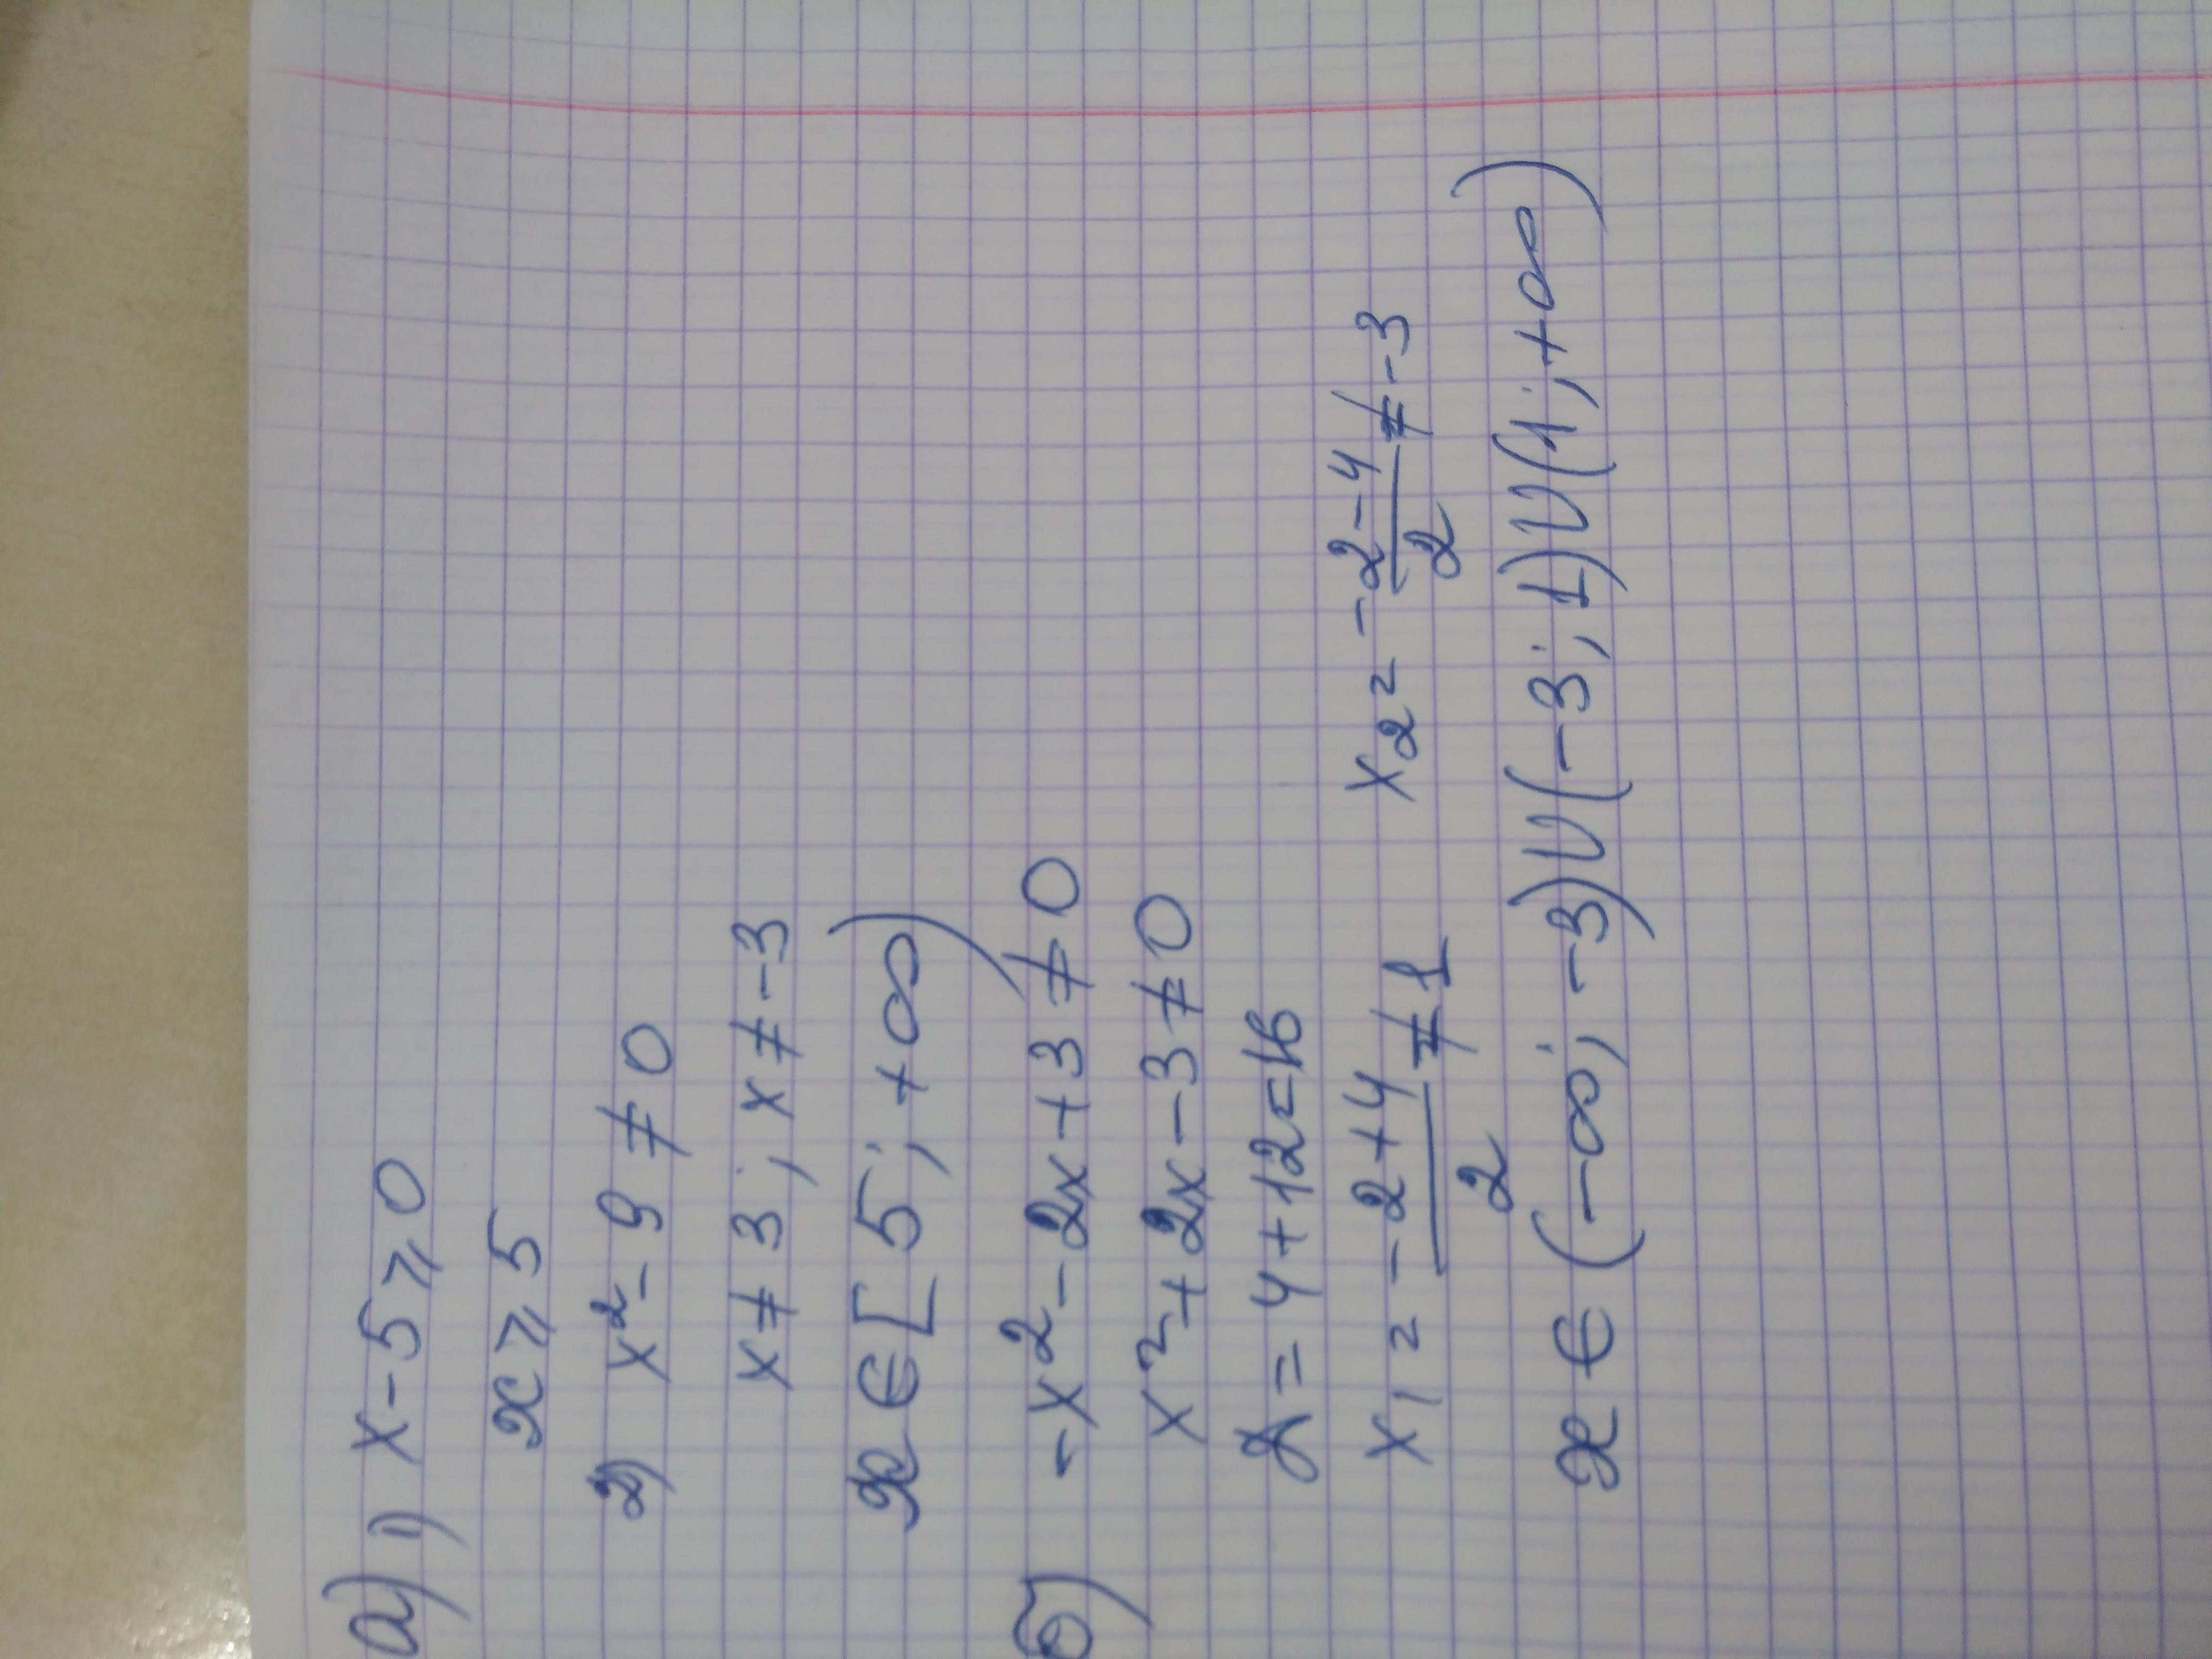 а) 1) x-5⩾0
x⩾5
2) x²-9≠0
x≠3; x≠-3
x∈[5;+∞)
б) -x²-2x+3≠0
x²+2x-3≠0
D=4+12=16
x₁=(-2+4)/2≠1 x₂=(-2-4)/2≠-3
x∈(-∞;-3)U(-3;1)U(1;+∞)